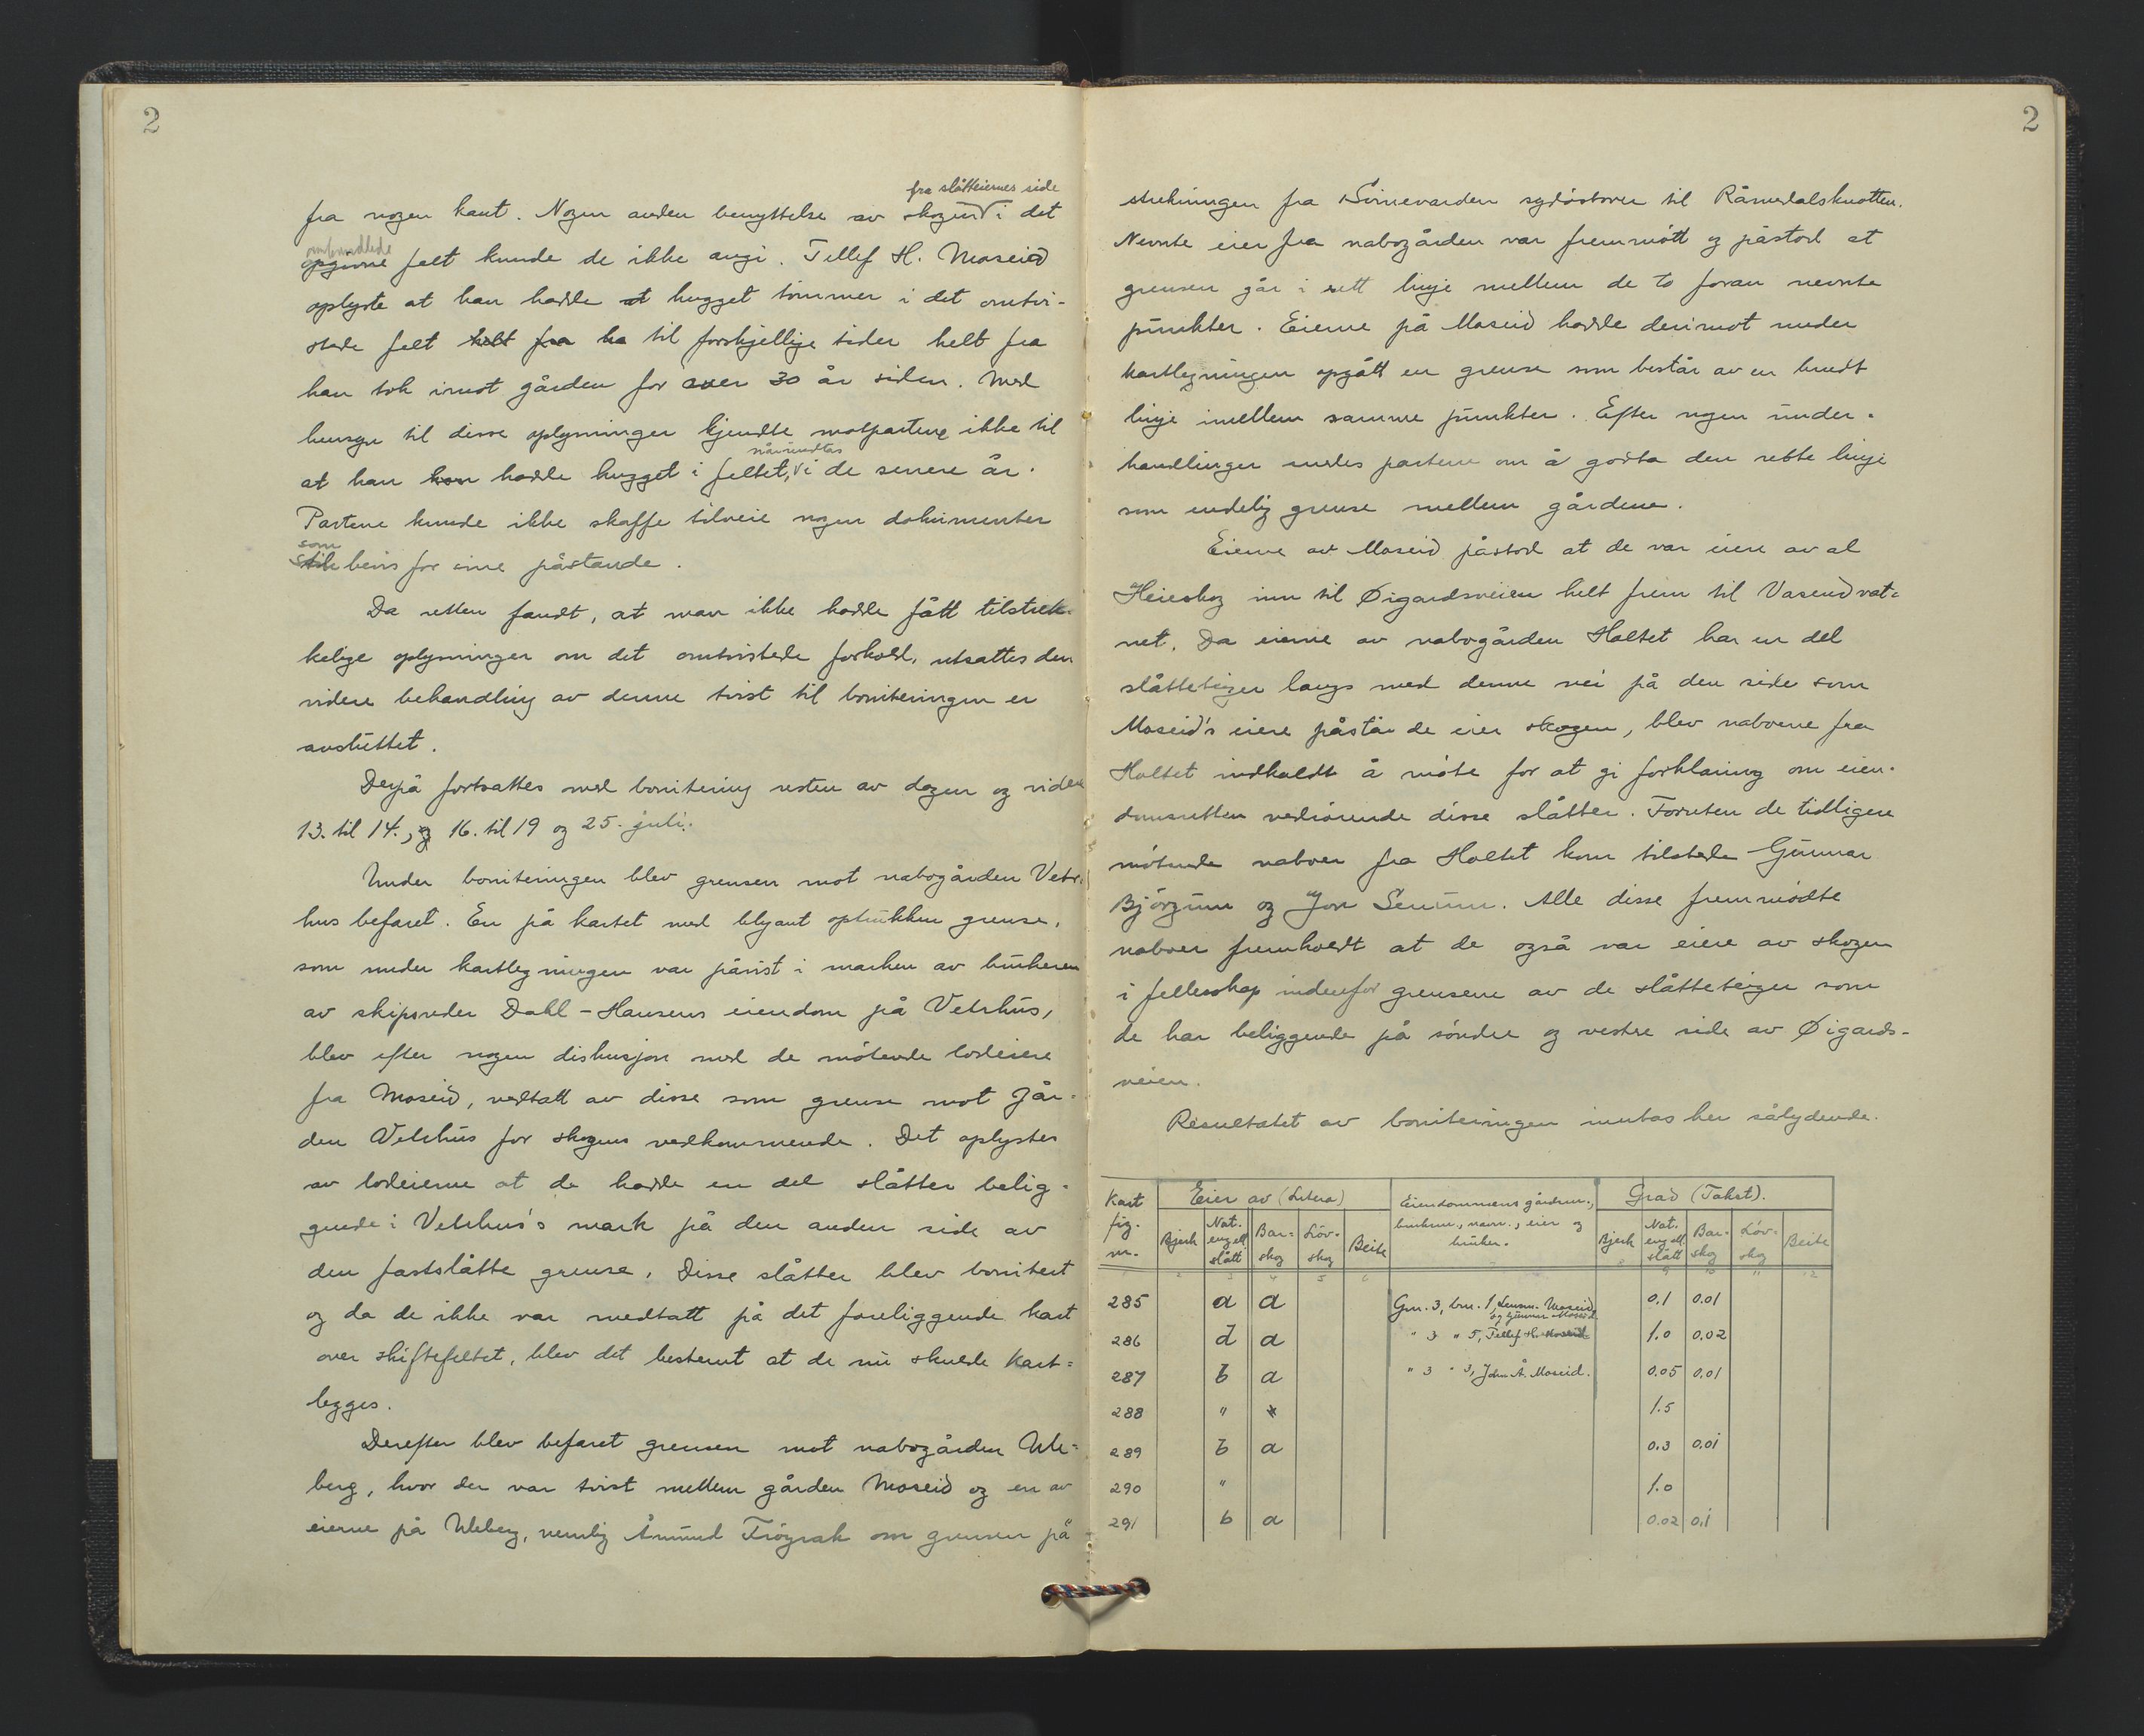 2
fra slåtteiernes side
fra nogen kant. Nogen anden benyttelse av skogen i det
omhandlede
opgivne felt kunde de ikke angi. Tellef H. Moseid
oplyste at han hadde at hugget tømmer i det omtvi-
stede felt helt fra ha til forskjellige tider helt fra
han tok imot gården for over 30 år siden. Med
hensyn til disse oplysninger kjendte motpartene ikke til
når undtas
at han han hadde hugget i feltet, i de senere år.
Partene kunde ikke skaffe tilveie nogen dokumenter
som
til bevis for sine påstande.
Da retten fandt, at man ikke hadde fått tilstrek-
kelige oplysninger om det omtvistede forhold, utsattes den
videre behandling av denne tvist til boniteringen er
avsluttet.
Derpå fortsattes med bonitering resten av dagen og videre
13. til 14., og 16. til 19 og 25. juli.
Under boniteringen blev grensen mot nabogården Vetr-
hus befaret. En på kartet med blyant optrukken grense,
som under kartlegningen var påvist i marken av brukeren
av skipsreder Dahl-Hansens eiendom på Vetrhus,
blev efter nogen diskusjon med de møtende lodeiere
fra Moseid, vedtatt av disse som grense mot går-
den Vetrhus for skogens vedkommende. Det oplystes
av lodeierne at de hadde en del slåtter belig-
gende i Vetrhus's mark på den anden side av
den fastslåtte grense. Disse slåtter blev bonitert
og da de ikke var medtatt på det foreliggende kart
over skiftefeltet, blev det bestemt at de nu skulde kart-
legges.
Derefter blev befaret grensen mot nabogården Ule-
berg, hvor der var tvist mellem gården Moseid og en av
eierne på Uleberg, nemlig Åmund Frøysak om grensen på
2
strekningen fra Sinnevarden sydøstover til Råmedalsknotten.
Nevnte eier fra nabogården var fremmøtt og påstod at
grensen går i rett linje mellem de to foran nevnte
punkter. Eierne på Moseid hadde derimot under
kartlegningen opgått en grense som består av en brudt
linje imellem samme punkter. Efter nogen under-
handlinger enedes partene om å godta den rette linje
som endelig grense mellem gårdene.
Eierne av Moseid påstod at de var eiere av al
Heieskog inn til Øigardsveien helt frem til Vasendvat-
net. Da eierne av nabogården Holtet har en del
slåtteteiger langs med denne vei på den side som
Moseid's eiere påstår de eier skogen, blev naboerne fra
Holtet indkaldt å møte for at gi forklaring om eien-
domsretten vedrørende disse slåtter. Foruten de tidligere
møtende naboer fra Holtet kom tilstede Gunnar
Bjørgum og Jon Senum. Alle disse fremmødte
naboer fremholdt at de også var eiere av skogen
i fellesskap indenfor grensene av de slåtteteiger som
de har beliggende på søndre og vestre side av Øigards-
veien.
Resultatet av boniteringen inntas her sålydende.
Kart fig. nr. Eier av (Litera) Eiendommens gårdsnr., bruksnr., navn., eier og bruker. Grad (Takst).
Bjerk Nat. eng ell. slått Bar-skog Löv-skog Beite Bjerk Nat. eng ell. slått Bar-skog Löv-skog Beite
1 2 3 4 5 6 7 8 9 10 11 12
285 a a Gnr. 3, bnr. 1, Lensm. Moseid og Gunnar Moseid 0.1 0.01
286 d a " 3 " 5, Tellef H. Moseid 1.0 0.02
287 b a " 3 " 3, John Å. Moseid. 0.05 0.01
288 " 1.5
289 b a 0.3 0.01
290 " 1.0
291 b a 0.02 0.1